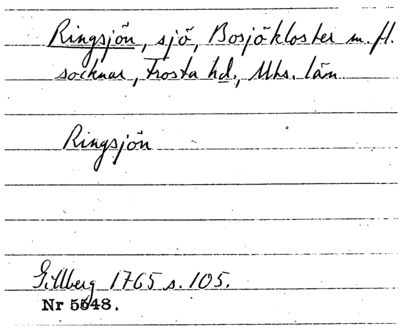 Ringsjön, sjö, Bosjökloster m. fl.
socknar, Frosta hd., Mhs. län
Ringsjön
Gillberg 1765 s. 105.
Nr 5548.